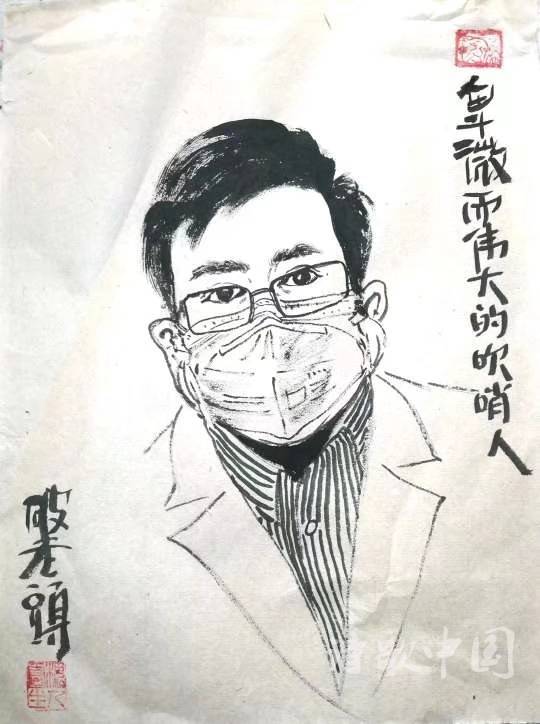 卑微而伟大的吹哨人
破老頭
中国